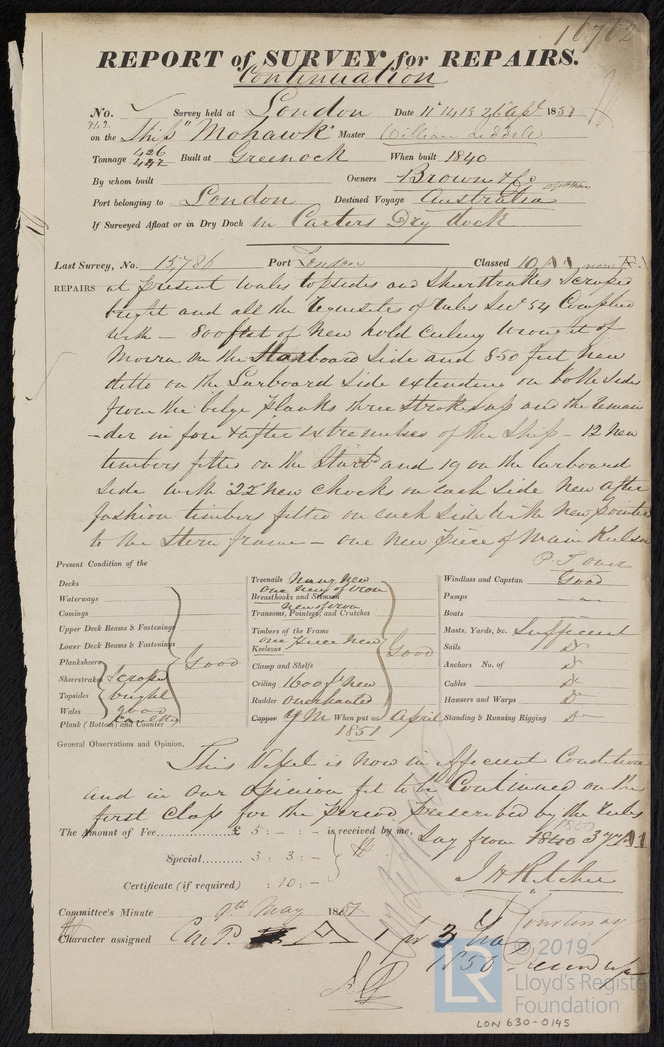 16762
REPORT of SURVEY for REPAIRS.
Continuation
No. Survey held at London Date 11th 14 15 26 Apl 1851
on the Ship "Mohawk" Master William
Tonnage 426 Built at Greenock When built 1840
447
By whom built Owners Brown & Co
Port belonging to London Destined Voyage Australia
If Surveyed Afloat or in Dry Dock in Carters Dry dock
Last Survey, No. 15786 Port London Classed 10 A1
REPAIRS at present wales topsides and Sheerstrakes Scraped
bright and all the requisites of Rules Sec 54 Complied
with — 800 feet of New hold Ceiling wrought of
Morra on the Starboard Side and 850 feet New
ditto on the Larboard Side extending on both sides
from the bilge planks three strakes up and the remain
-der in fore & after extremities of the Ship - 12 New
timbers fitted on the Starbd and 19 on the larboard
Side with 22 New Chocks on each Side New after
fashion timbers fitted on each side with New pointers
to the Stern frame — one New piece of Main Keelson
P. T. Over
Present Condition of the
Decks
Waterways
Comings
Upper Deck Beams & Fastenings
Lower Deck Beams & Fastenings
Planksheers Good
Sheerstrakes Scraped
Topsides bright
Wales good
Plank (Bottom) and Counter
Treenails Many New
Breasthooks and Stemson one New of iron
Transoms, Pointers, and Crutches New of iron
Timbers of the Frame
Keelsons one piece New
Good
Clamp and Shelfs
Ceiling 1600 ft New
Rudder overhauled
Copper YM When put on April
1851
Windlass and Capstan Good
Pumps
Boats
Masts, Yards, &c. Sufficient
Sails Do
Anchors No. of Do
Cables Do
Hawsers and Warps Do
Standing & Running Rigging Do
General Observations and Opinion,
This Vessel is now in efficient Condition
and in our Opinion fit to be Continued on the
first Class for the Period prescribed by the Rules
The Amount of Fee £ 5 : - : - is received by me, Say from 1840 3 Ys A1
Special 3 : 3 : -
Certificate (if required) : 10 : -
J H Ritchie
Committee's Minute 9th May 1851
Courtenay
Character assigned
1850
© 2019
LR
Lloyd's Register
Foundation
LON 630-0145